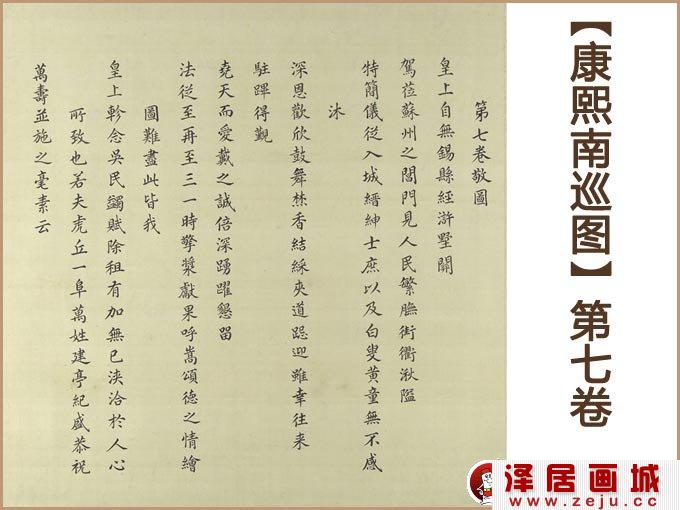 第七卷敬圖
皇上自無錫縣經滸墅關
駕莅蘇州之閶門見人民繁膴街衢湫隘
特簡儀從入城縉紳士庶以及白叟黄童無不感
沐
深恩歡欣鼓舞焚香結綵夾道跽迎雖幸往来
駐蹕得覲
堯天而愛戴之誠倍深踴躍懇留
法從至再至三一時擎漿獻果呼嵩頌徳之情繪
圖難盡此皆我
皇上軫念吳民蠲賦除租有加無已浹洽於人心
所致也若夫虎丘一阜萬姓建亭紀盛恭祝
萬壽並施之毫素云
【康熙南巡图】第七卷
泽居画城
www.zeju.cc